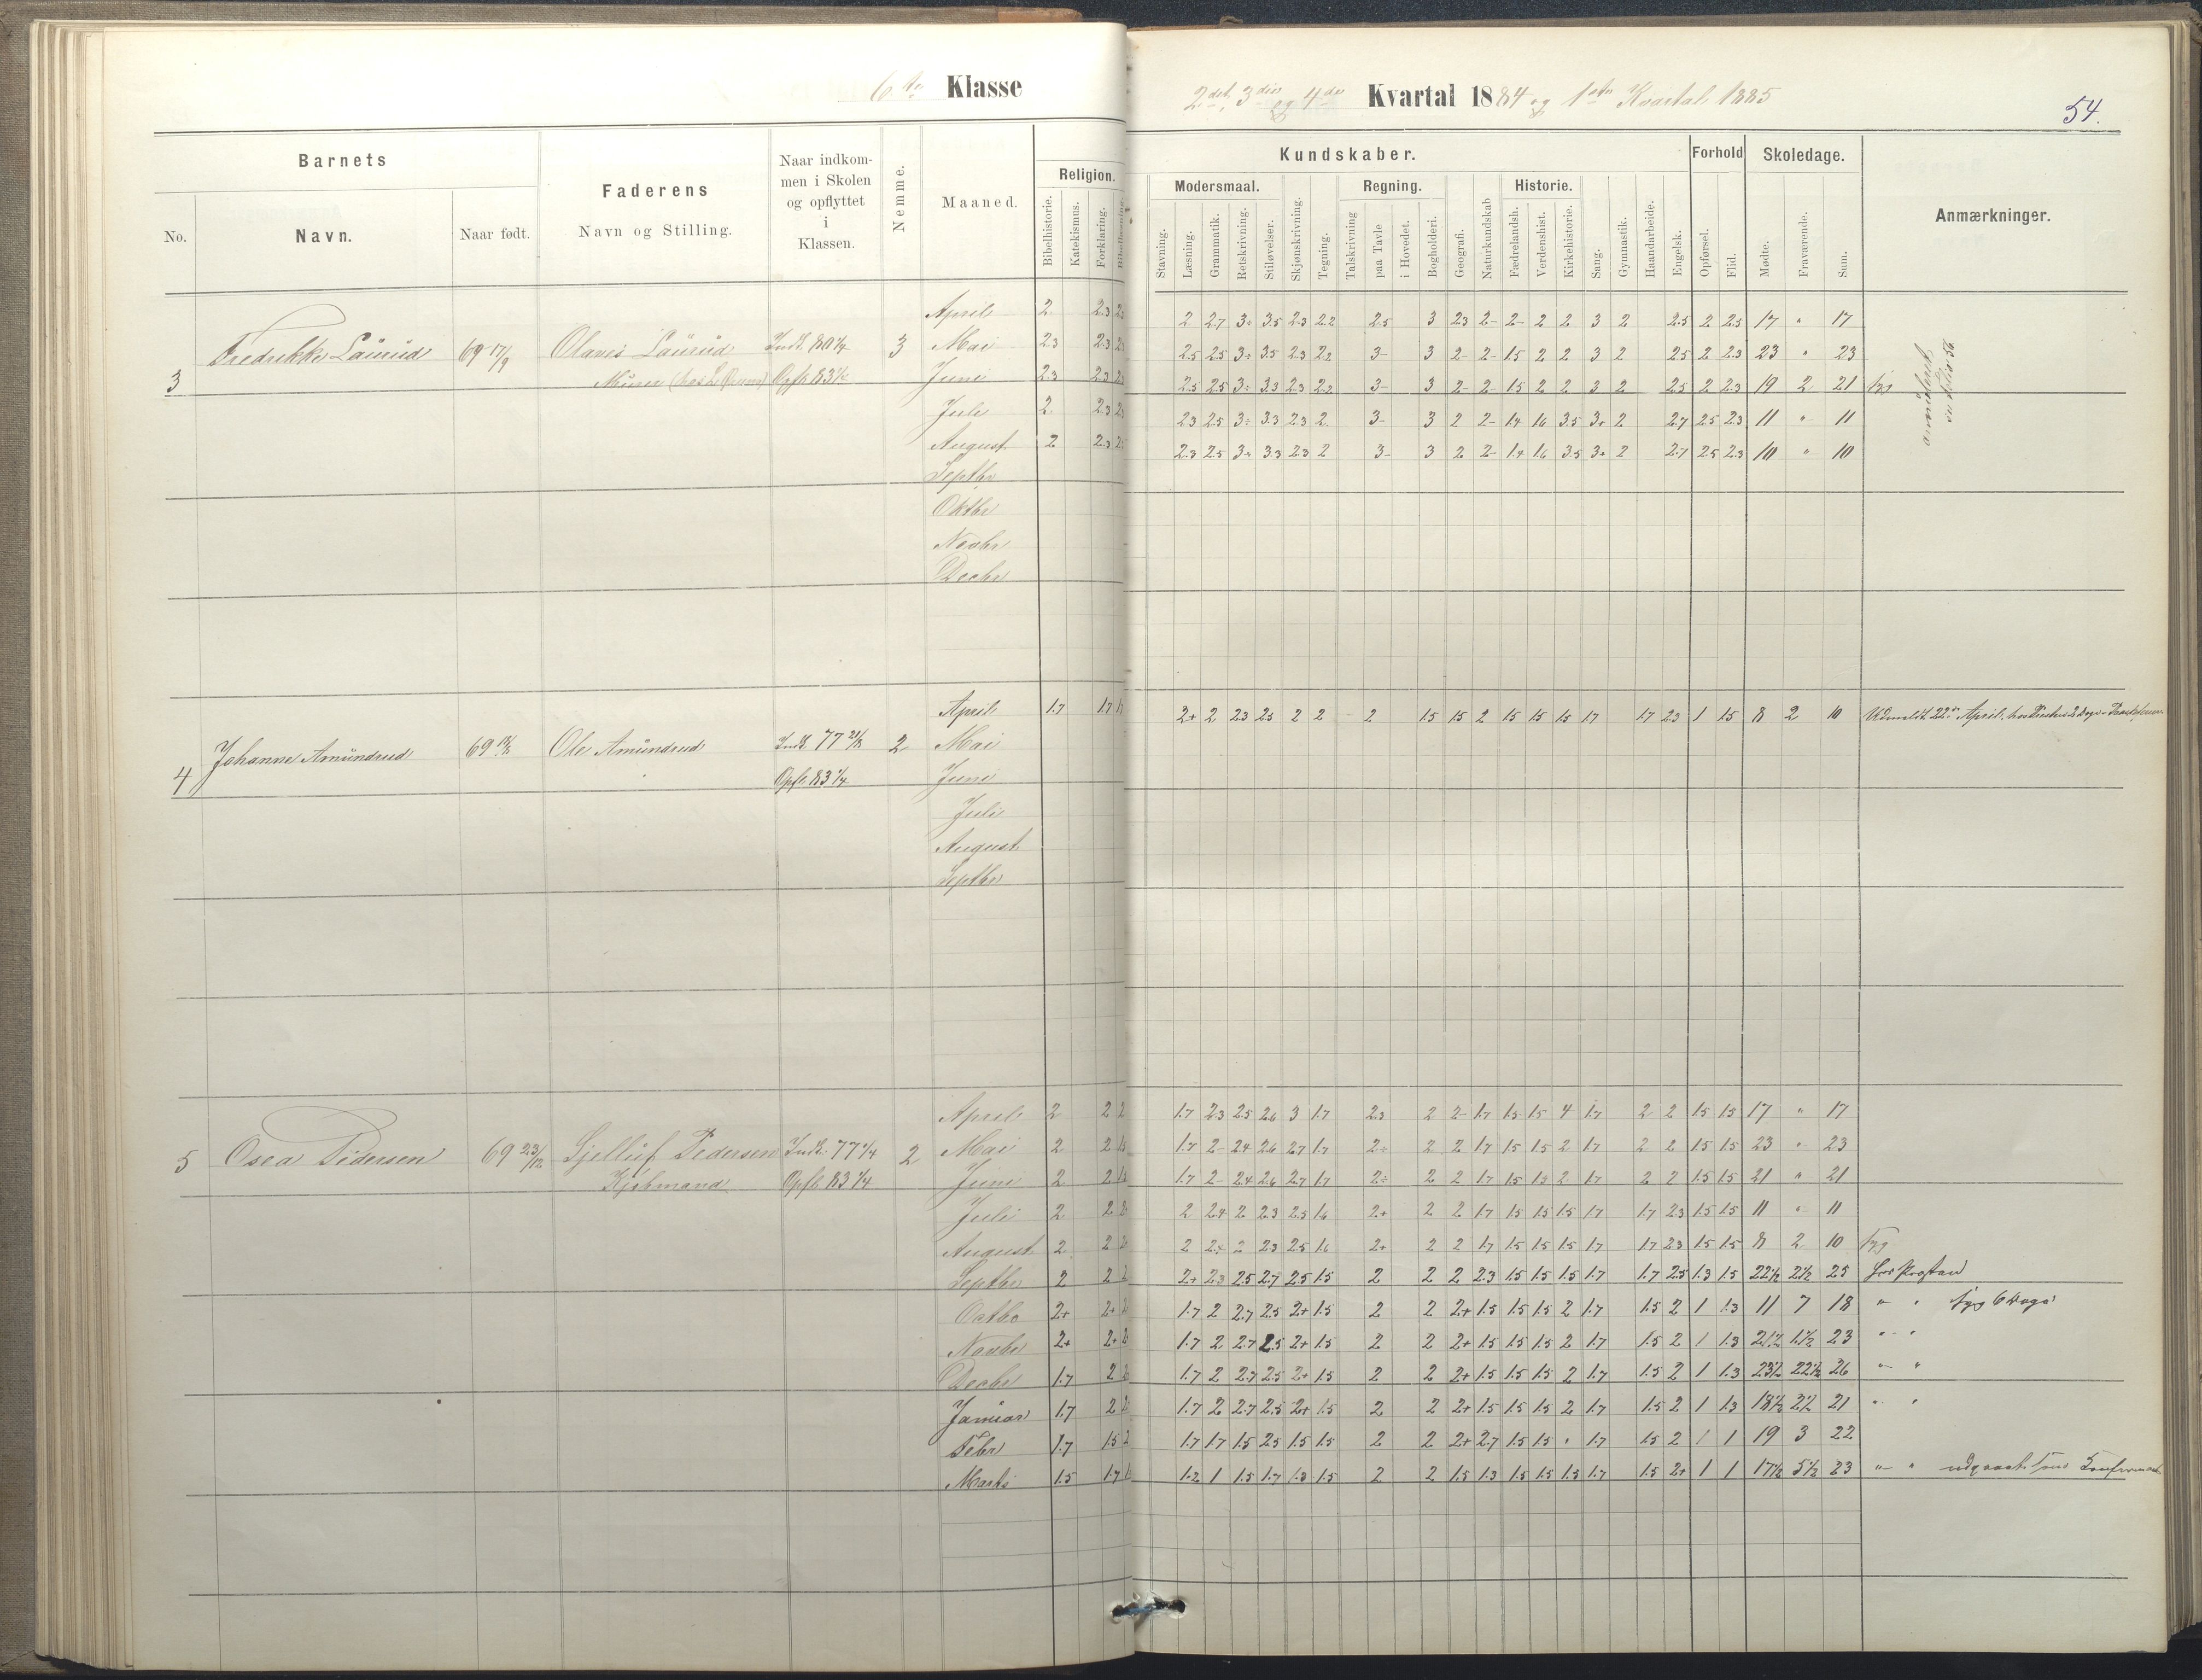 6te Klasse
2det, 3die og 4de Kvartal 1884 og 1ste Kvartal 1885
54.
Barnets
No.
Navn.
Naar født.
Faderens
Navn og Stilling.
Naar indkom-
men i Skolen
og opflyttet
i
Klassen.
Nemme.
Maaned.
Religion.
Bibelhistorie.
Katekismus.
Forklaring.
Kundskaber.
Modersmaal.
Stavning.
Læsning.
Grammatik.
Retskrivning.
Stiløvelser.
Skjønskrivning.
Tegning.
Regning.
Talskrivning
paa Tavle
i Hovedet.
Bogholderi.
Geografi.
Naturkundskab
Historie.
Fædrelandsh.
Verdenshist.
Kirkehistorie.
Sang.
Gymnastik.
Haandarbeide.
Engelsk.
Forhold
Opførsel.
Flid.
Skoledage.
Mødte.
Fraværende.
Sum.
Anmærkninger.
3 Fredrikke Laurud 69 17/9 Olaves Laurud
Murer
3
April 2 2.3 2 2.7 3÷ 3.5 2.3 2.2 2.5 3 2.3 2- 2- 2 2 3 2 2.5 2 2.5 17 " 17
Mai 2.3 2.3 2.5 2.5 3÷ 3.5 2.3 2.2 3- 3 2- 2- 1.5 2 2 3 2 2.5 2 2.3 23 " 23
Juni 2.3 2.3 2.5 2.5 3÷ 3.3 2.3 2.2 3- 3 2- 2- 1.5 2 2 3 2 2.5 2 2.3 19 2 21 syg
Juli 2 2.3 2.3 2.5 3÷ 3.3 2.3 2 3- 3 2 2- 1.4 1.6 3.5 3+ 2 2.7 2.5 2.3 11 " 11
August 2 2.3 2.3 2.5 3÷ 3.3 2.3 2 3- 3 2 2- 1.4 1.6 3.5 3+ 2 2.7 2.5 2.3 10 " 10
Septbr
Oktbr
Novbr
Decbr
4 Johanne Amundrud 69 Ole Amundrud
Opfl. 83 1/4
2
April 1.7 1.7 2+ 2 2.3 2.5 2 2 2 1.5 1.5 2 1.5 1.5 1.5 1.7 1.7 2.3 1 1.5 8 2 10 Udmeldt 22de April.
Mai
Juni
Juli
August
Septbr
5 Osea Pedersen 69 23/12 Gjelluf Pedersen Indk. 77 1/4
Kjøbmand Opfl. 83 1/4
2
April 2 2 1.7 2.3 2.5 2.6 3 1.7 2.3 2 2- 1.7 1.5 1.5 4 1.7 2 2 1.5 1.5 17 " 17
Mai 2 2 1.7 2- 2.4 2.6 2.7 1.7 2÷ 2 2 1.7 1.5 1.5 2 1.7 2 2 1.5 1.5 23 " 23
Juni 2 2 1.7 2- 2.4 2.6 2.7 1.7 2÷ 2 2 1.7 1.5 1.3 2 1.7 2 2 1.5 1.5 21 " 21
Juli 2 2 2 2.4 2 2.3 2.5 1.6 2+ 2 2 1.7 1.5 1.5 1.5 1.7 1.7 2.3 1.5 1.5 11 " 11
August 2 2 2 2 2.3 2.5 1.6 2+ 2 2 1.7 1.5 1.5 1.5 1.7 1.7 2.3 1.5 1.5 8 2 10 Syg
Septbr 2 2 2+ 2.3 2.5 2.7 2.5 1.5 2 2 2 2.3 1.5 1.5 1.5 1.7 1.7 2.5 1.3 1.5 22½ 2½ 25 hos Presten
Octbr 2+ 2+ 1.7 2 2.7 2.5 2+ 1.5 2 2 2+ 1.5 1.5 1.5 2 1.7 1.5 2 1 1.3 11 7 18 " " syg 6 Dage
Novbr 2+ 2+ 1.7 2 2.7 2.5 2+ 1.5 2 2 2+ 1.5 1.5 1.5 2 1.7 1.5 2 1 1.3 21½ 1½ 23 " "
Decbr 1.7 2 1.7 2 2.7 2.5 2+ 1.5 2 2 2+ 1.5 1.5 1.5 2 1.7 1.5 2 1 1.3 23½ 2½ 26 " "
Januar 1.7 2 1.7 2 2.7 2.5 2+ 1.5 2 2 2+ 1.5 1.5 1.5 2 1.7 1.5 2 1 1.3 18½ 2½ 21 " "
Febr 1.7 1.5 1.7 1.7 1.5 2.5 1.5 1.5 2 2 2+ 2.7 1.5 1.5 " 1.7 1.5 2 1 1 19 3 22
Marts 1.5 1.7 1.2 1 1.5 1.7 1.3 1.5 2 2 1.5 1.3 1.5 1.5 1.3 1.7 1.5 2+ 1 1 17½ 5½ 23 " "